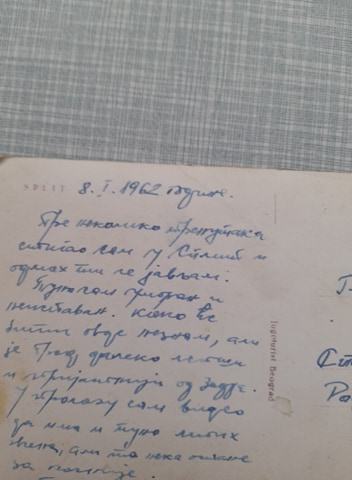 SPLIT
8. I. 1962 године.
Пре неколико тренутака
стигао сам у Сплит и
одмах ти се јављам.
Путовам
Како ће
бити овде незнам, али
је град далеко лепши
и пријатнији од Задра.
У пролазу сам видео
да има и пуно лепих
жена, али то нека остане
за касније.
Jugoturist Beograd